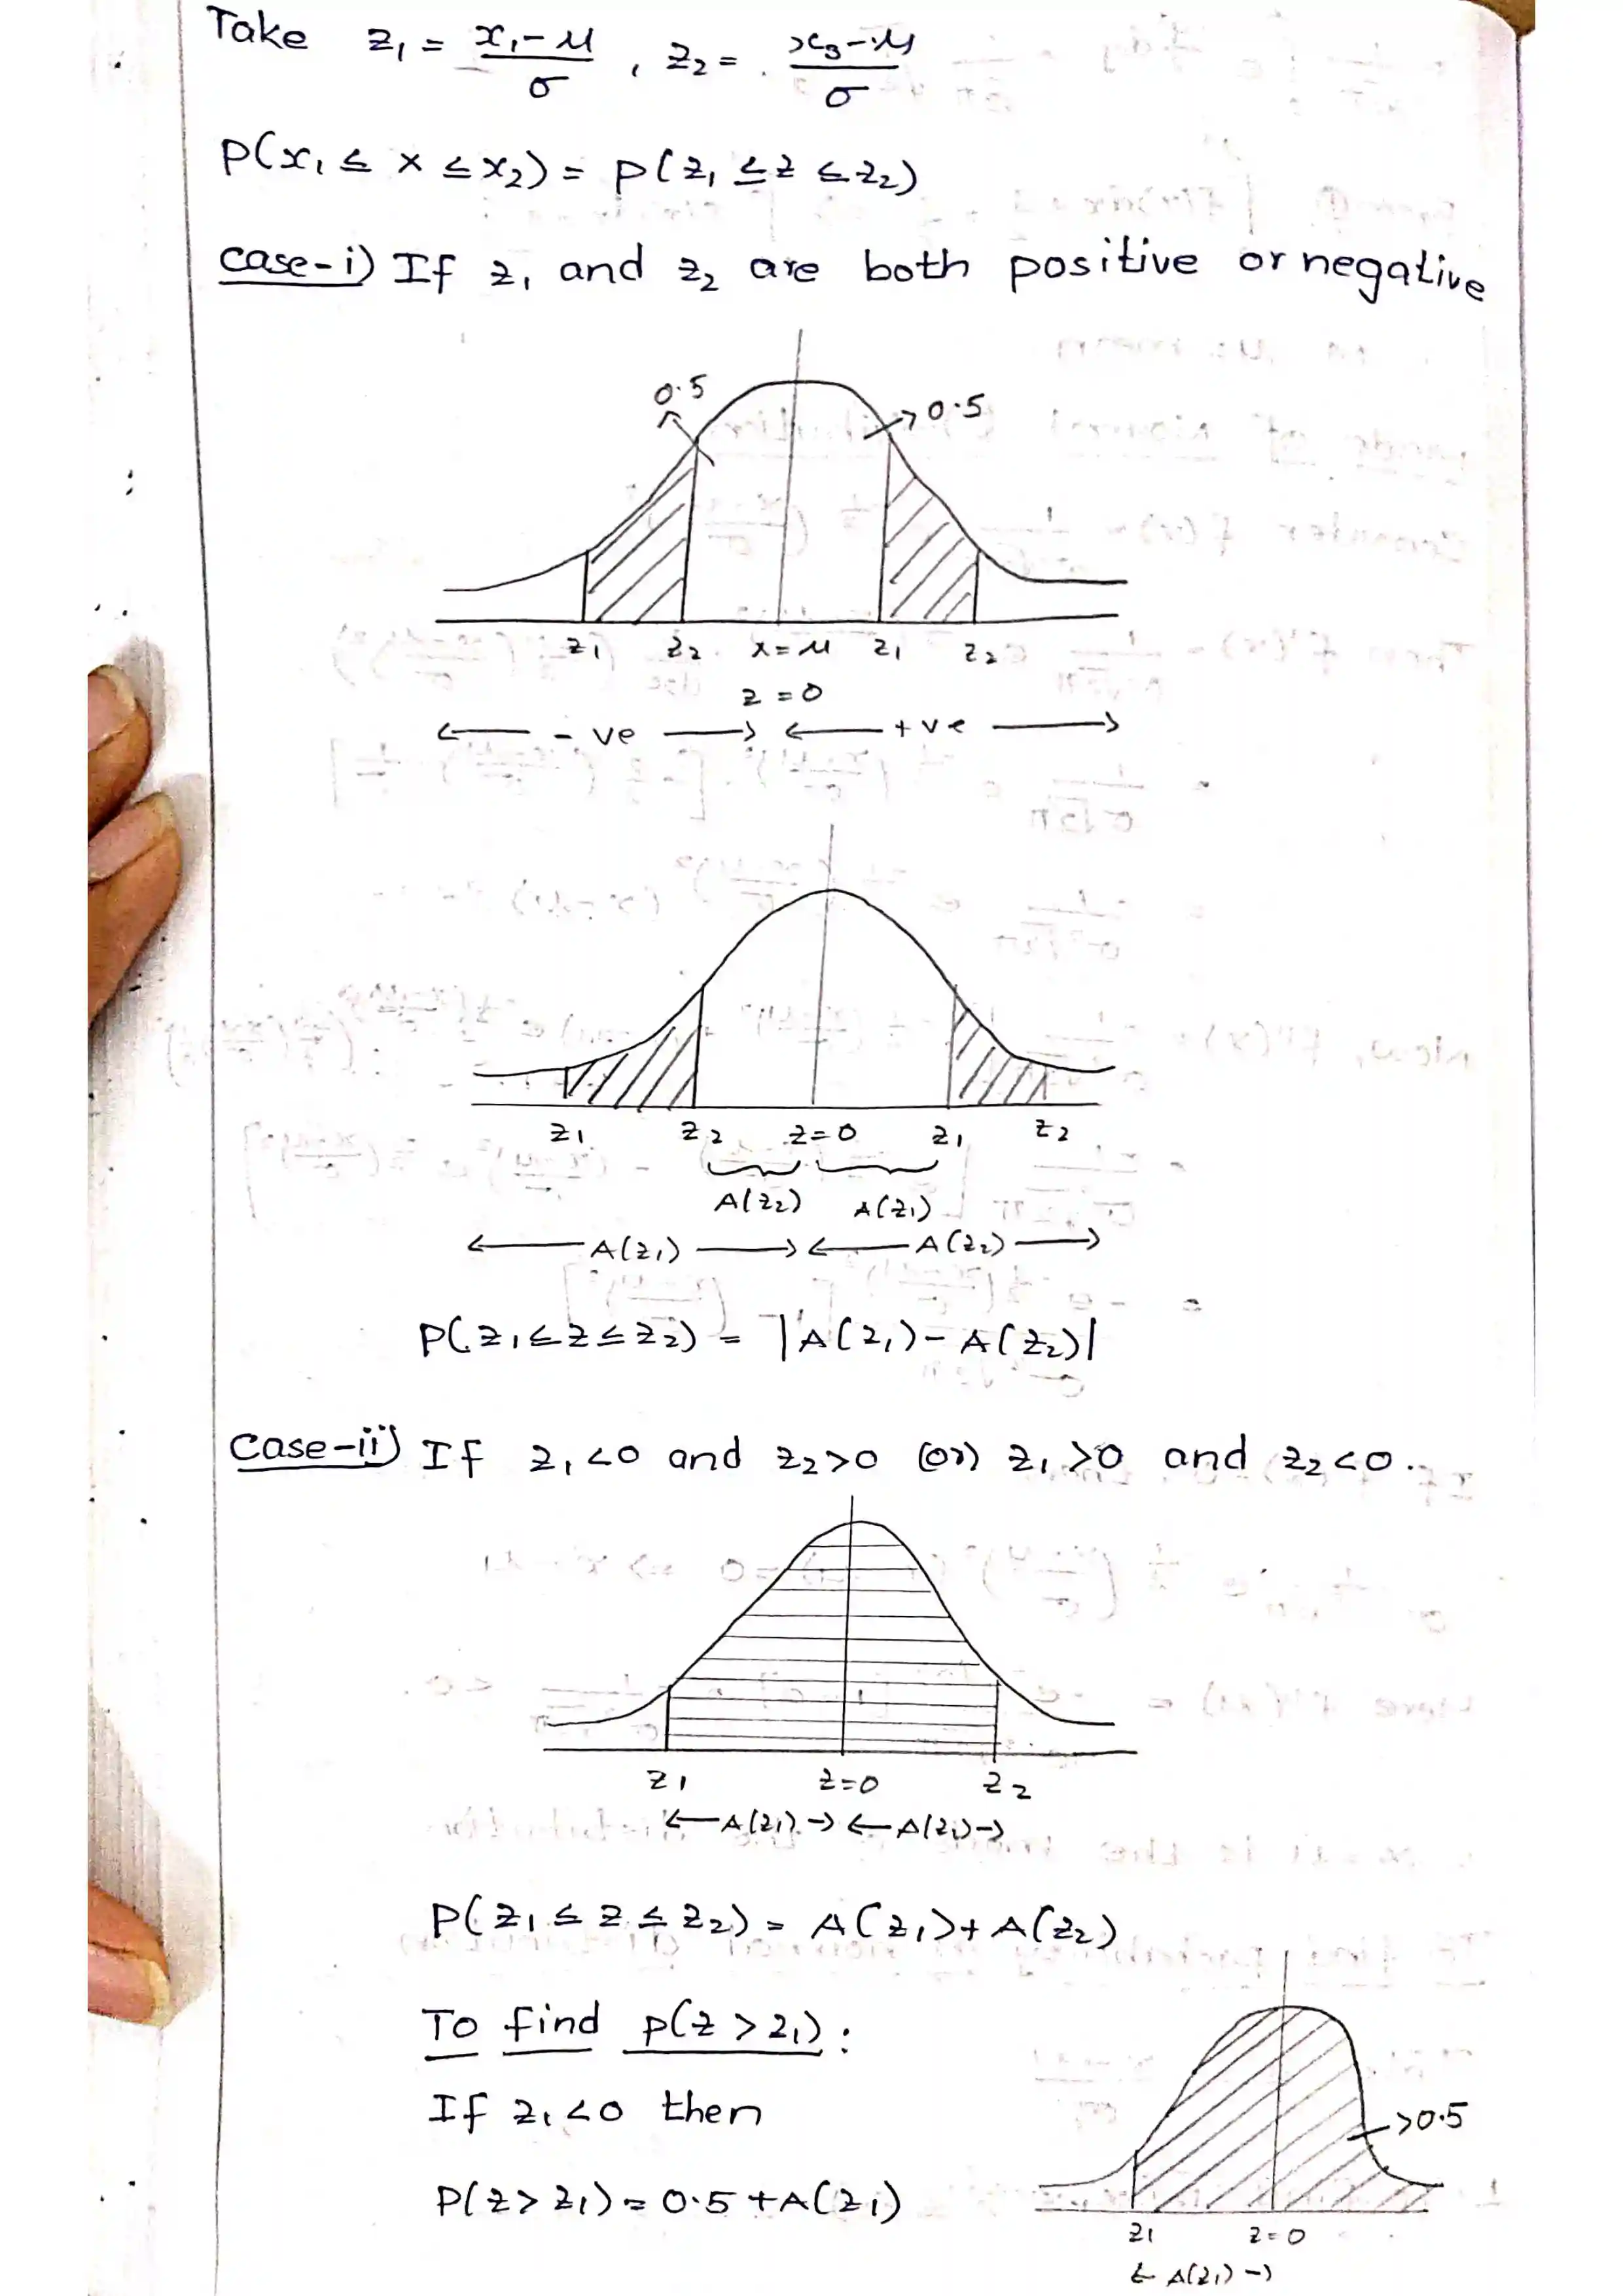 Take z₁ = x₁-μ/σ , z₂ = x₃-μ/σ
P(x₁ ≤ x ≤ x₂) = P(z₁ ≤ z ≤ z₂)
case-i) If z₁ and z₂ are both positive or negative
0.5 0.5
z₁ z₂ x=μ z₁ z₂
z=0
- ve + ve
z₁ z₂ z=0 z₁ z₂
A(z₂) A(z₁)
A(z₁) A(z₂)
P(z₁ ≤ z ≤ z₂) = |A(z₁) - A(z₂)|
case-ii) If z₁ <0 and z₂ >0 (or) z₁ >0 and z₂ <0.
z₁ z=0 z₂
A(z₁) A(z₂)
P(z₁ ≤ z ≤ z₂) = A(z₁) + A(z₂)
To find P(z > z₁) :
If z₁ <0 then
0.5
P(z > z₁) = 0.5 + A(z₁)
z₁ z=0
A(z₁)